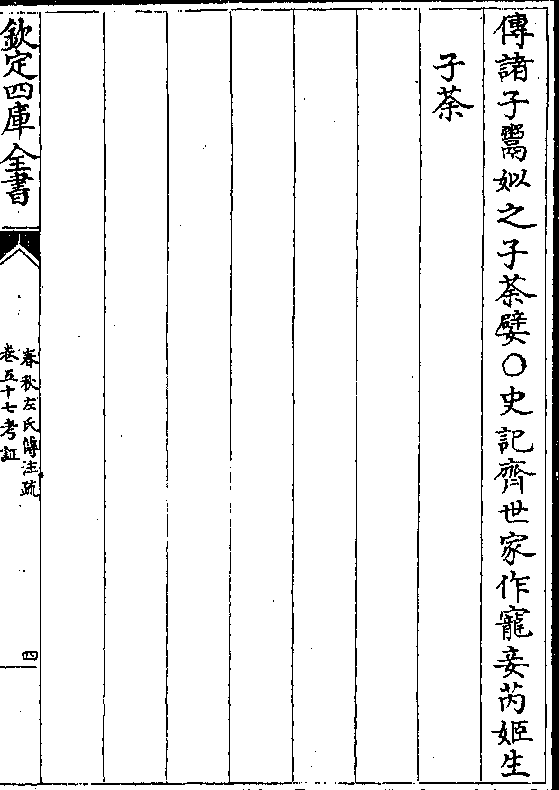 傳諸子鬻姒之子荼嬖○史記齊世家作寵妾芮姬生
子荼
欽定四庫全書
春秋左氏傳注疏
卷五十七考証
四